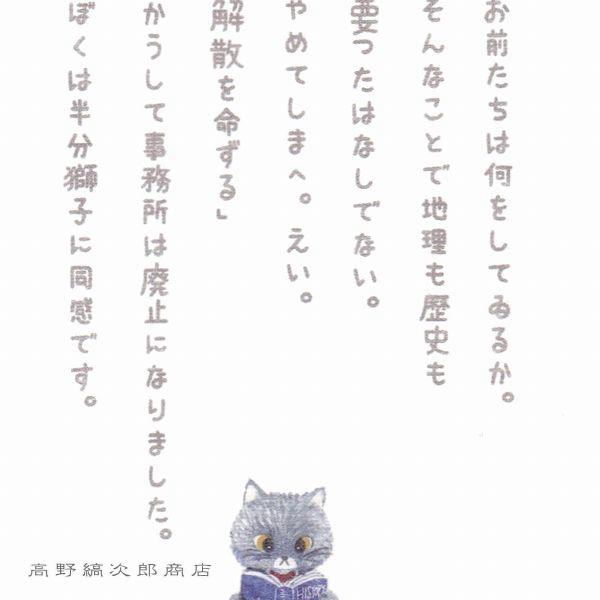 お前たちは何をしてゐるか。
そんなことで地理も歴史も
要つたはなしでない。
やめてしまへ。えい。
解散を命ずる」
かうして事務所は廃止になりました。
ぼくは半分獅子に同感です。
高野縞次郎商店